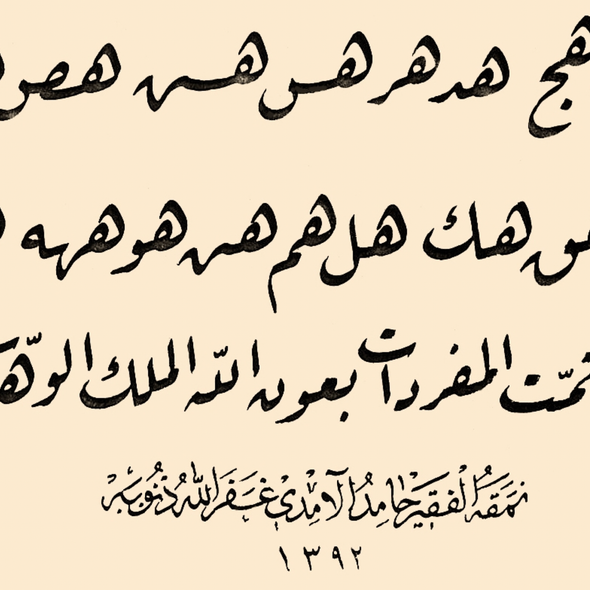 هج هد هر هس هس هص
هق هك هل هم هن هو هه
تمّت المفردات بعون اللّه الملك الوّه
نَمَّقَهُ الْفَقِيرْ حَامِدُ الْآمِدِيْ غَفَرَ اللّٰهُ ذُنُوبَهُ
١٣٩٢